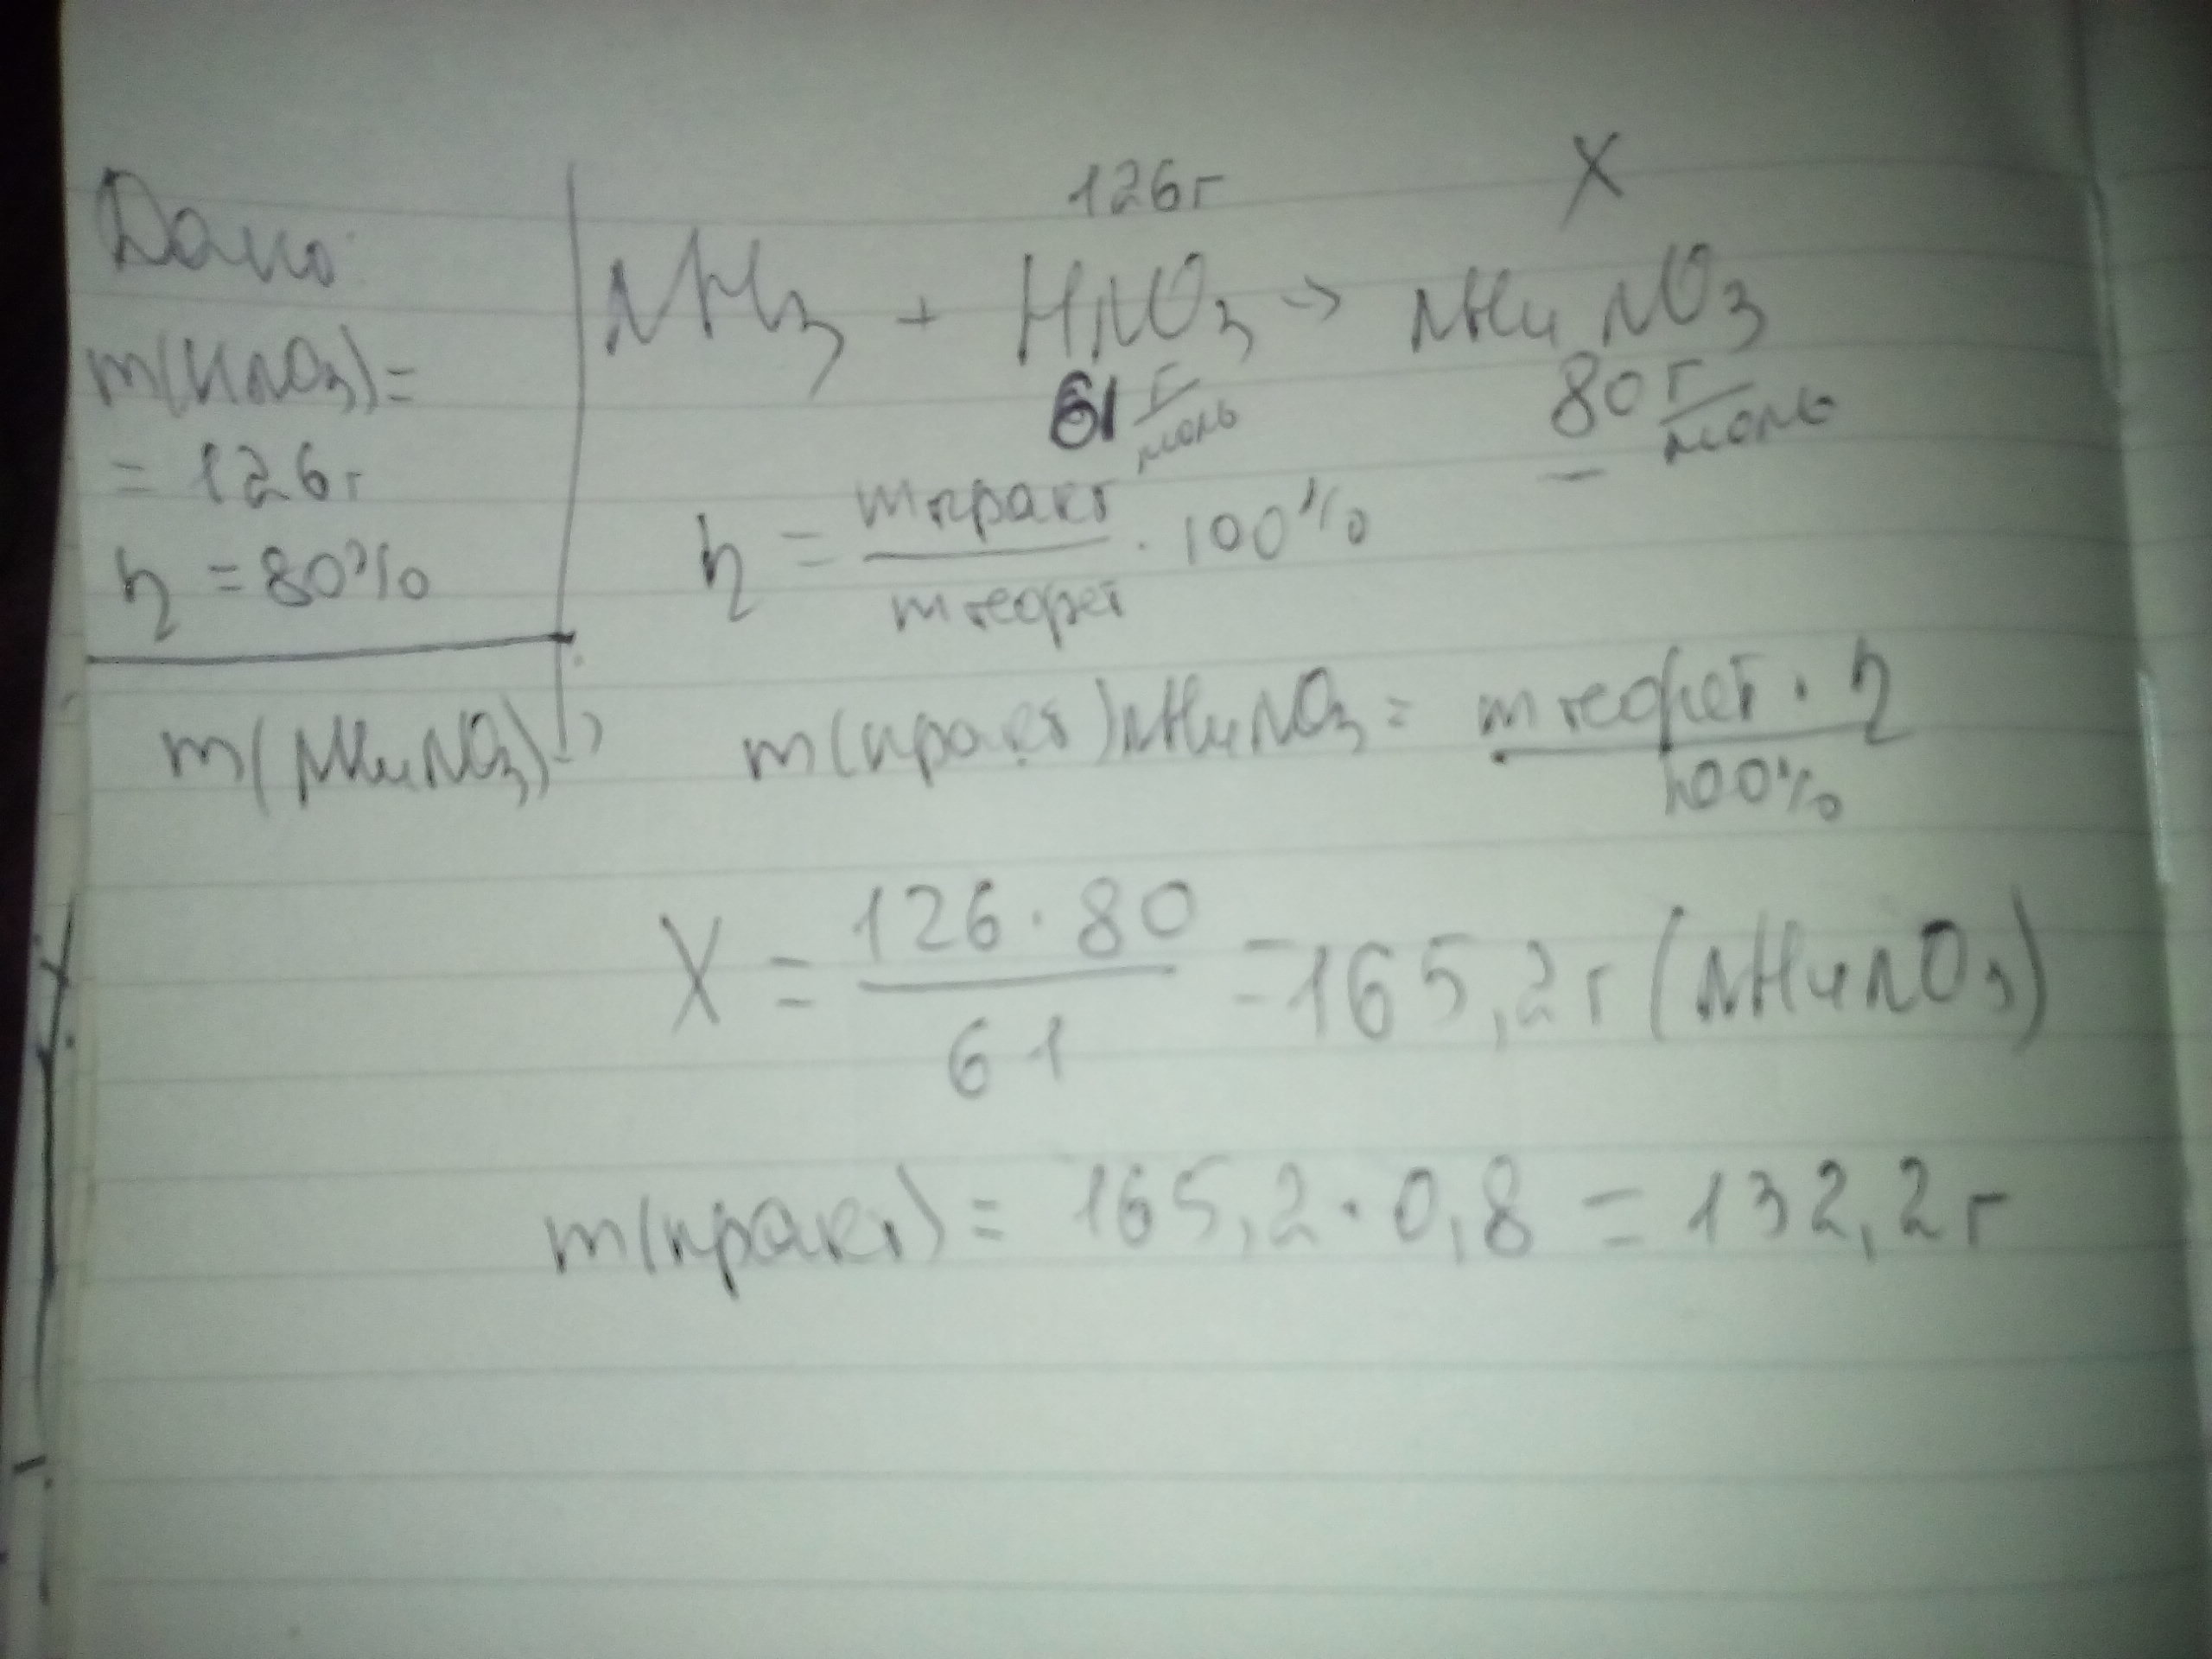 Дано:
m(HNO3)=
= 126г
η = 80%
m(NH4NO3)-?
126г X
NH3 + HNO3 → NH4NO3
61 г/моль 80 г/моль
η = mпракт/mтеорет · 100%
m(практ)NH4NO3 = mтеорет · η/100%
X = 126 · 80/61 = 165,2г (NH4NO3)
m(практ) = 165,2 · 0,8 = 132,2г